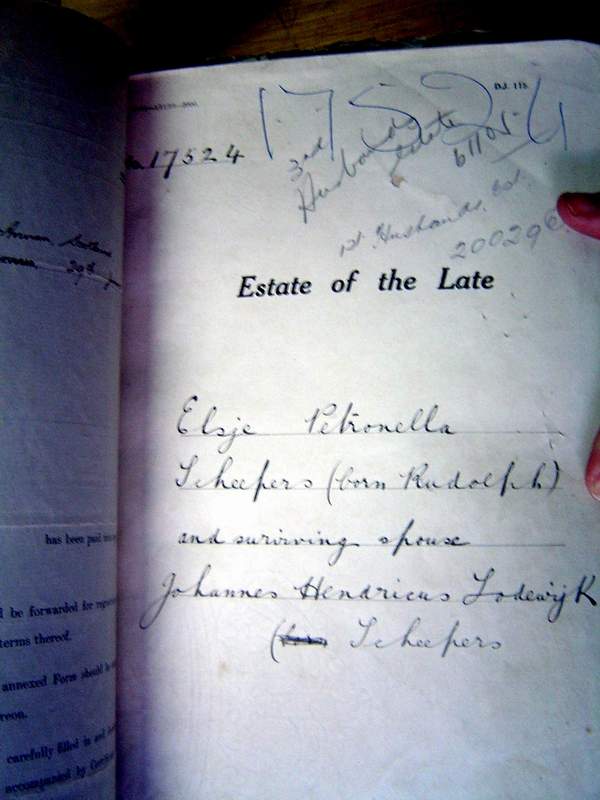 D.J. 113.
17524
17524
3rd
Husband's
estate
61105
1st Husbands Est.
20029
Estate of the Late
Elsje Petronella
Scheepers (born Rudolph)
and surviving spouse
Johannes Hendricus Lodewijk
Scheepers
29th
has been paid
l be forwarded for
terms thereof.
annexed Form should be
reon.
carefully filled in and
accompanied by